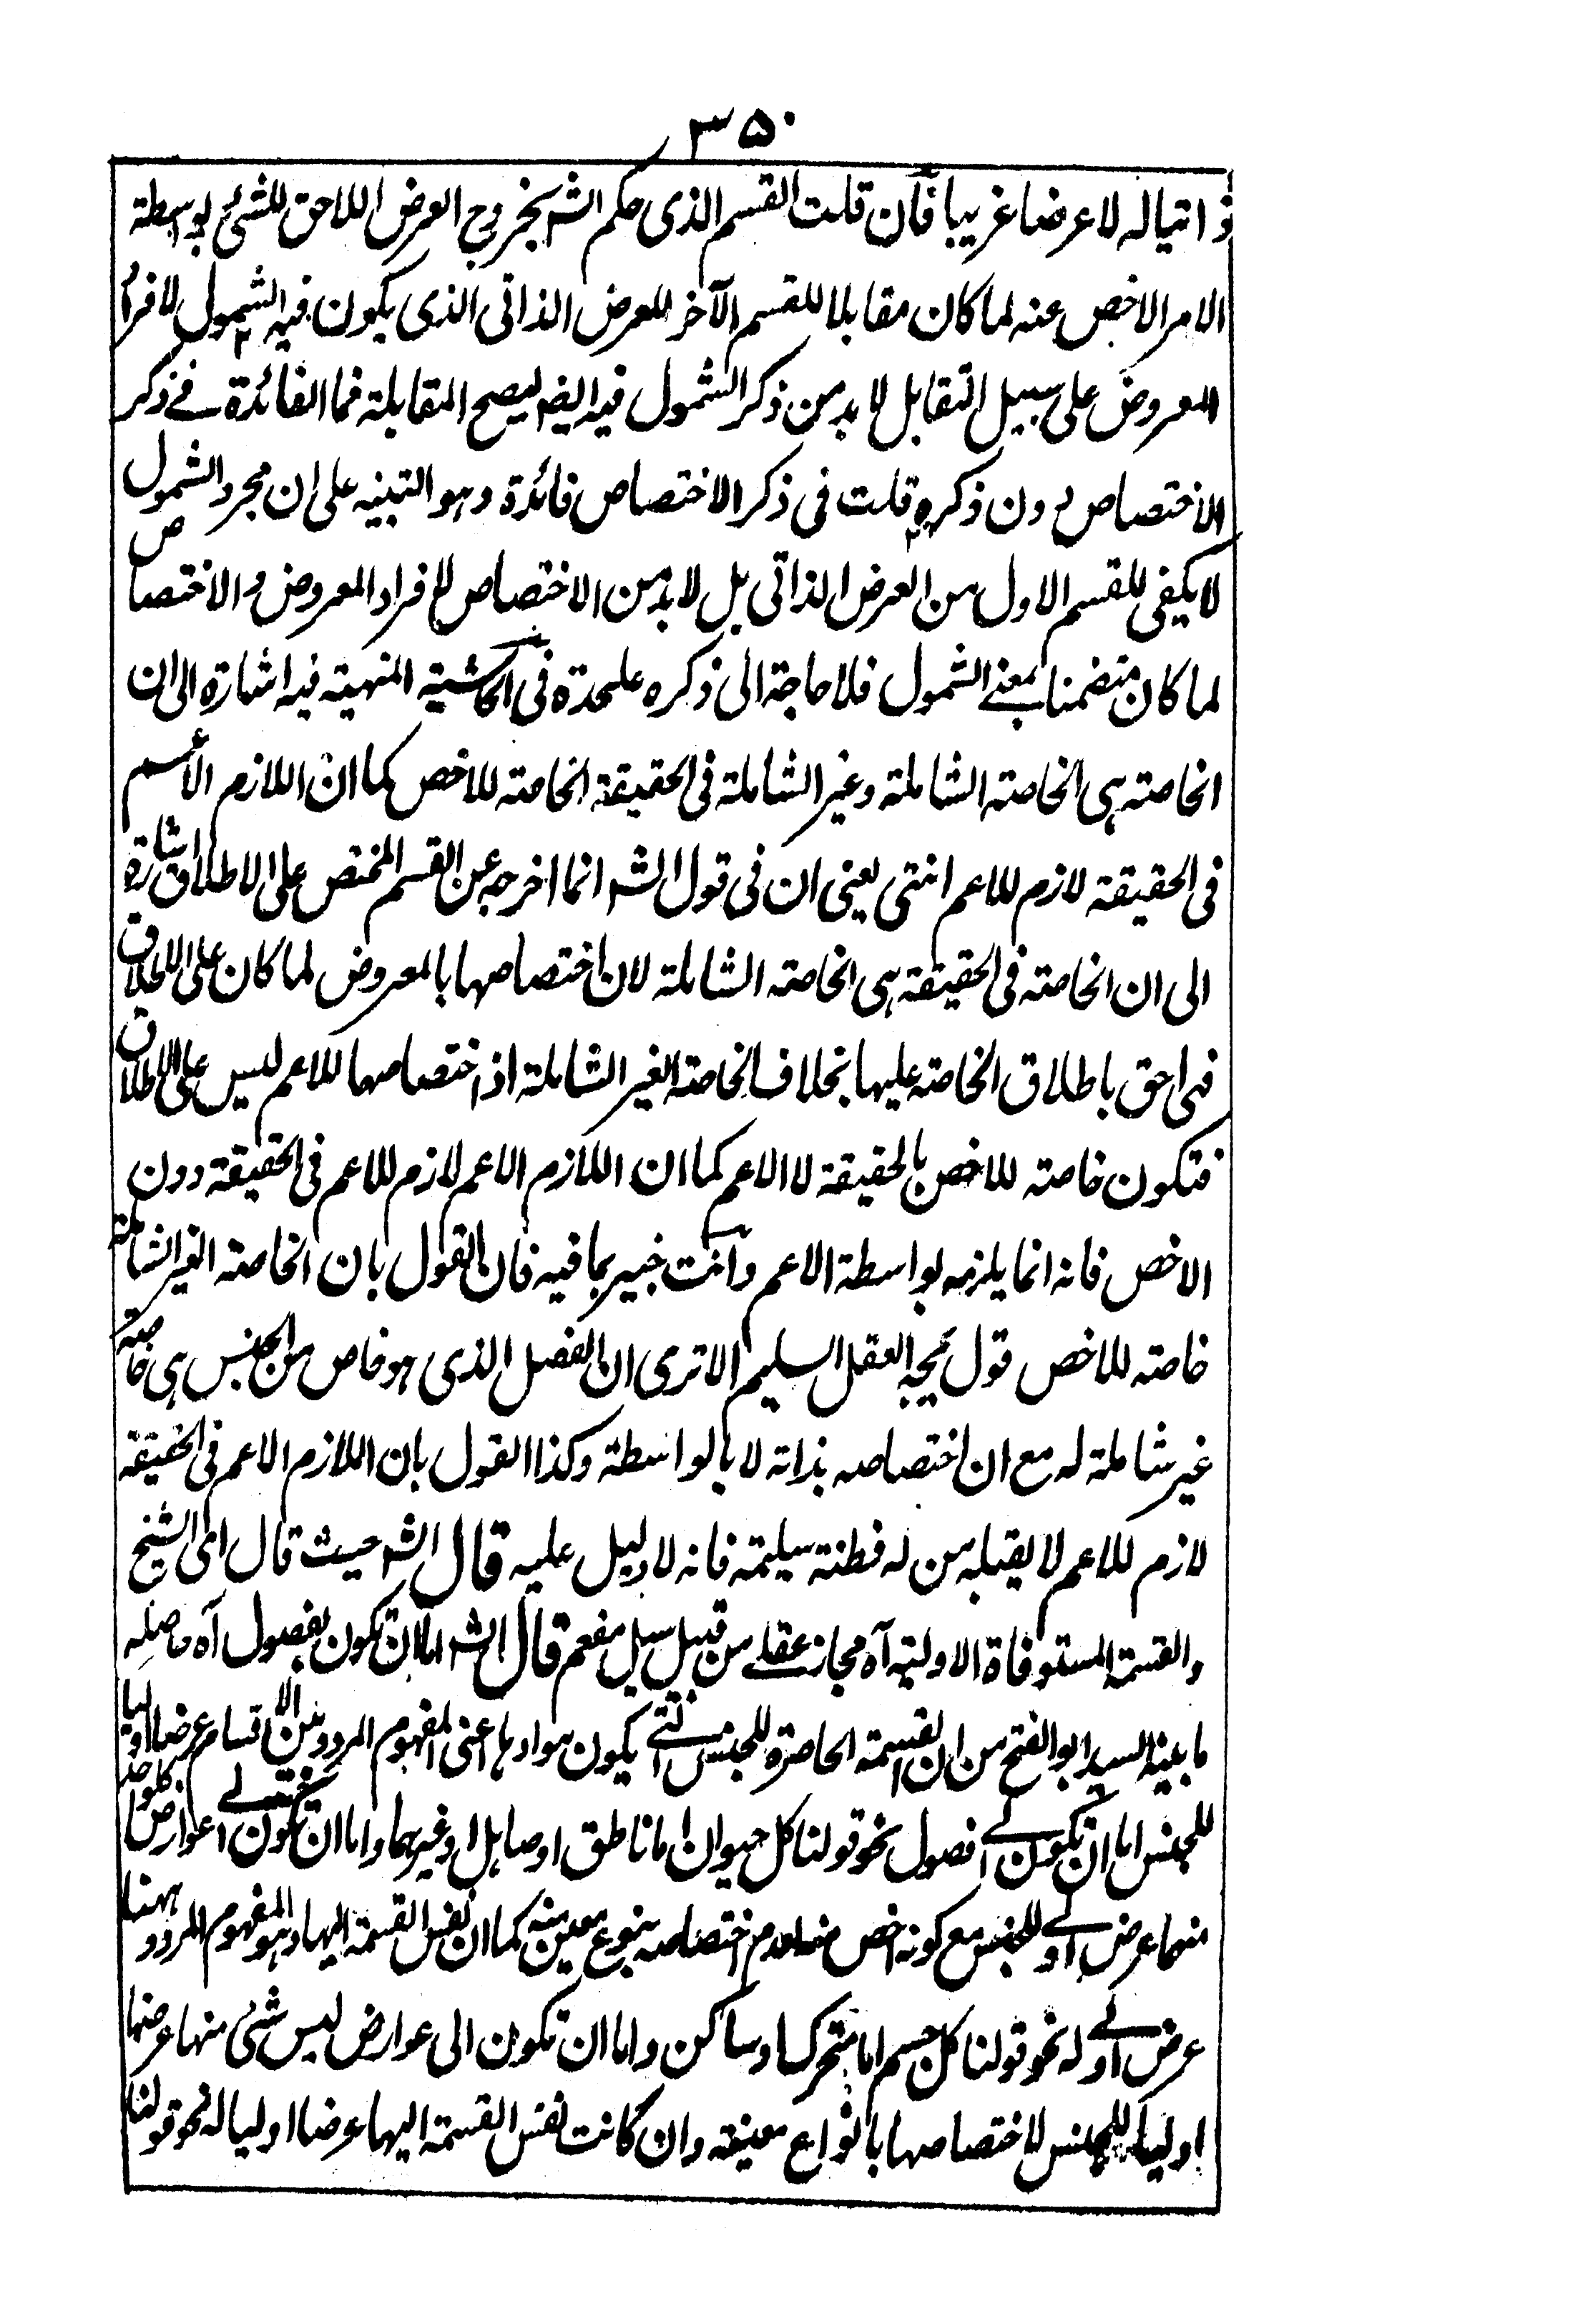 ۳۵۰
ذاتيا له لا عرضا غريبا فان قلت القسم الذى حكم الش بخروج العرض اللاحق للشئ بواسطة
الامر الاخص عنه لما كان مقابلا للقسم الآخر للعرض الذاتى الذى يكون فيه الشمول لافراد
المعروض على سبيل التقابل لا بد من ذكر الشمول فيه ايضا ليصح المقابلة فما الفائدة فى ذكر
الاختصاص دون ذكره قلت فى ذكر الاختصاص فائدة وهو التنبيه على ان مجرد الشمول
لا يكفى للقسم الاول من العرض الذاتى بل لا بد من الاختصاص للافراد المعروض والاختصاص
لما كان متضمنا بمعنى الشمول فلا حاجة الى ذكره علحدة فى الحاشية المنهية فيه اشارة الى ان
الخاصة هى الخاصة الشاملة وغير الشاملة فى الحقيقة الخاصة للاخص كما ان اللازم الأعم
فى الحقيقة لازم للاعم انتهى يعنى ان فى قول الش انما اخرجه عن القسم المختص على الاطلاق اشارة
الى ان الخاصة فى الحقيقة هى الخاصة الشاملة لان اختصاصها بالمعروض لما كان على الاطلاق
فهى احق باطلاق الخاصة عليها بخلاف الخاصة الغير الشاملة اذ اختصاصها للاعم ليس على الاطلاق
فتكون خاصة للاخص بالحقيقة لا الاعم كما ان اللازم الاعم لازم للاعم فى الحقيقة دون
الاخص فانه انما يلزمه بواسطة الاعم وانت خبير بما فيه فان القول بان الخاصة الغير الشاملة
خاصة للاخص قول يمجه العقل السليم الا ترى ان الفصل الذى هو خاص من الجنس هى خاصة
غير شاملة له مع ان اختصاصه بذاته لا بالواسطة وكذا القول بان اللازم الاعم فى الحقيقة
لازم للاعم لا يقبله من له فطنة سليمة فانه لا دليل عليه قال الش حيث قال اى الشيخ
والقسمة المستوفاة الاولية آه مجاز عقلى من قبيل سيل مفعم قال الش اما لان تكون بفصول آه حاصله
ما بينه السيد ابو الفتح من ان القسمة الحاصرة للجنس التى يكون موادها اعنى المفهوم المردد بين الاقسام عرضا اوليا
للجنس اما ان تكون الى فصول نحو قولنا كل حيوان اما ناطق او صاهل او غيرهما واما ان تكون الى عوارض كل واحد
منها عرض اولى للجنس مع كونه اخص منه لعدم اختصاصه بنوع معين منه كما ان نفس القسمة اليها وهو المفهوم المردد بينها
عرض اولى له نحو قولنا كل جسم اما متحرك او ساكن واما ان تكون الى عوارض ليس شئ منها عرضا
اوليا للجنس لاختصاصها بانواع معينة وان كانت نفس القسمة اليها عرضا اوليا له نحو قولنا